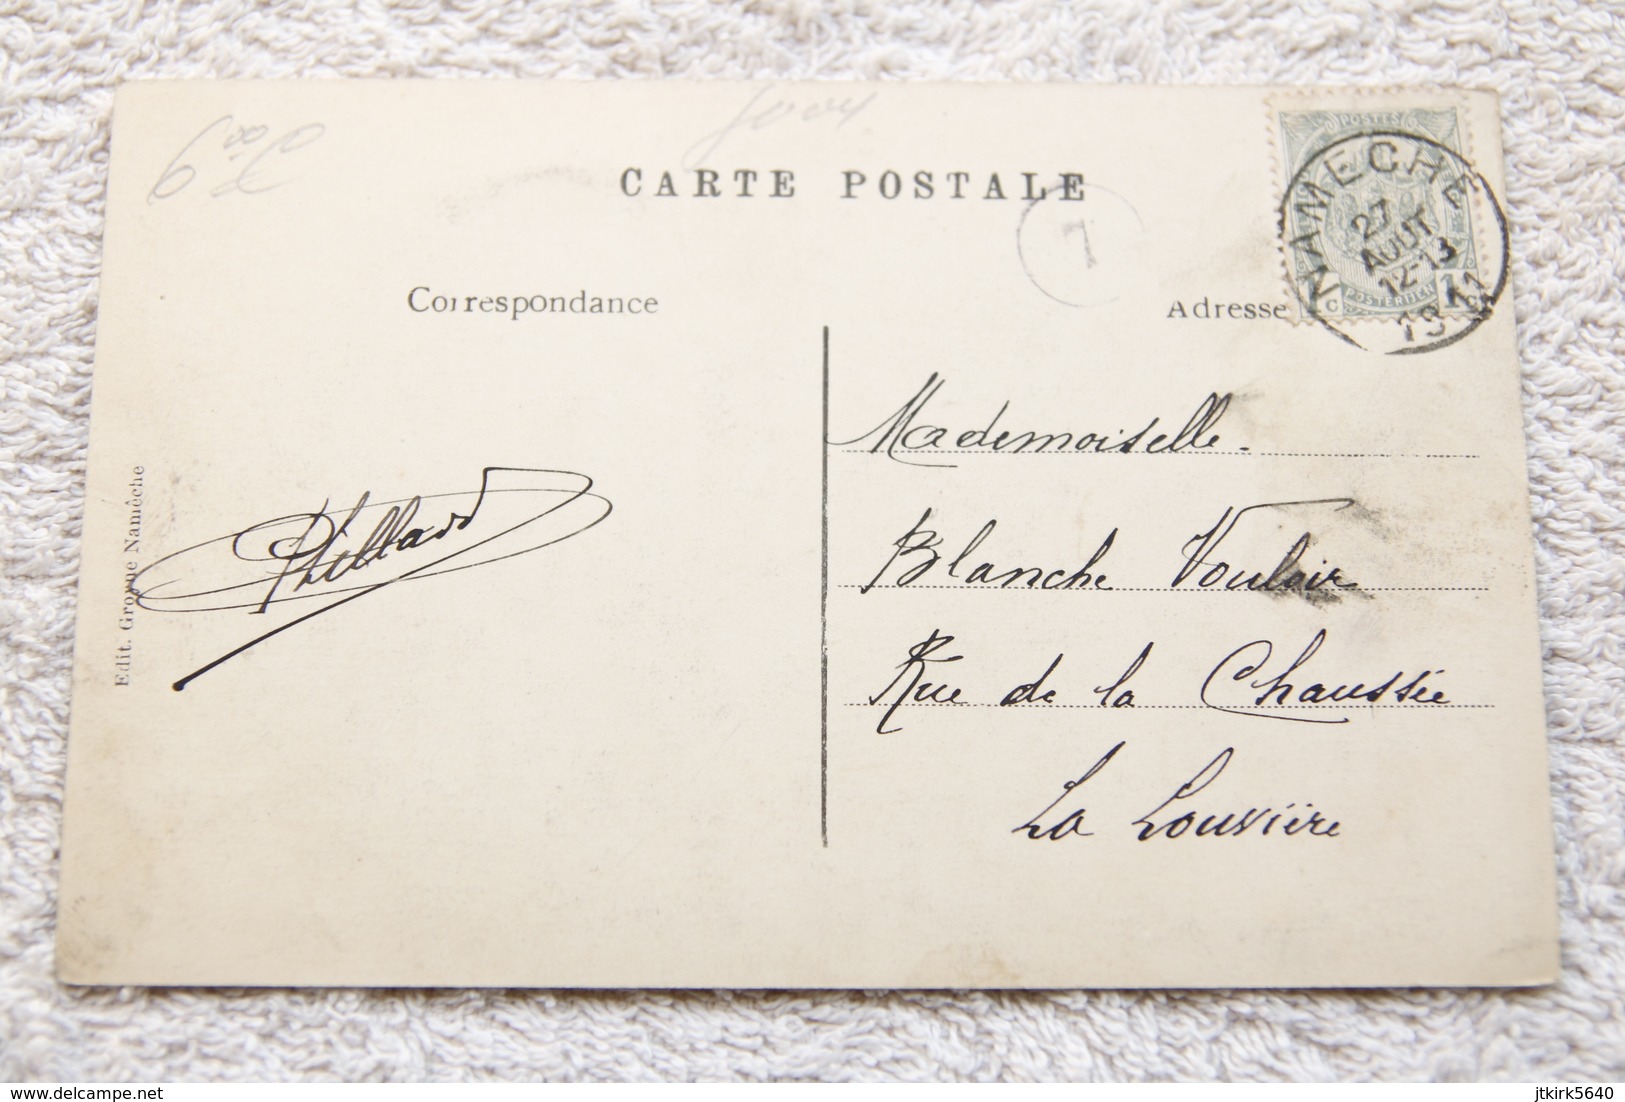 6,00 €
CARTE POSTALE
7
POSTES
NAMECHE
27
AOUT
12-13
1911
1c
POSTERIJEN
Correspondance
Adresse
Mademoiselle.
Blanche Vouloir
Rue de la Chaussée
La Louvière
Edit. Grogne Namêche
www.delcampe.net
jtkirk5640